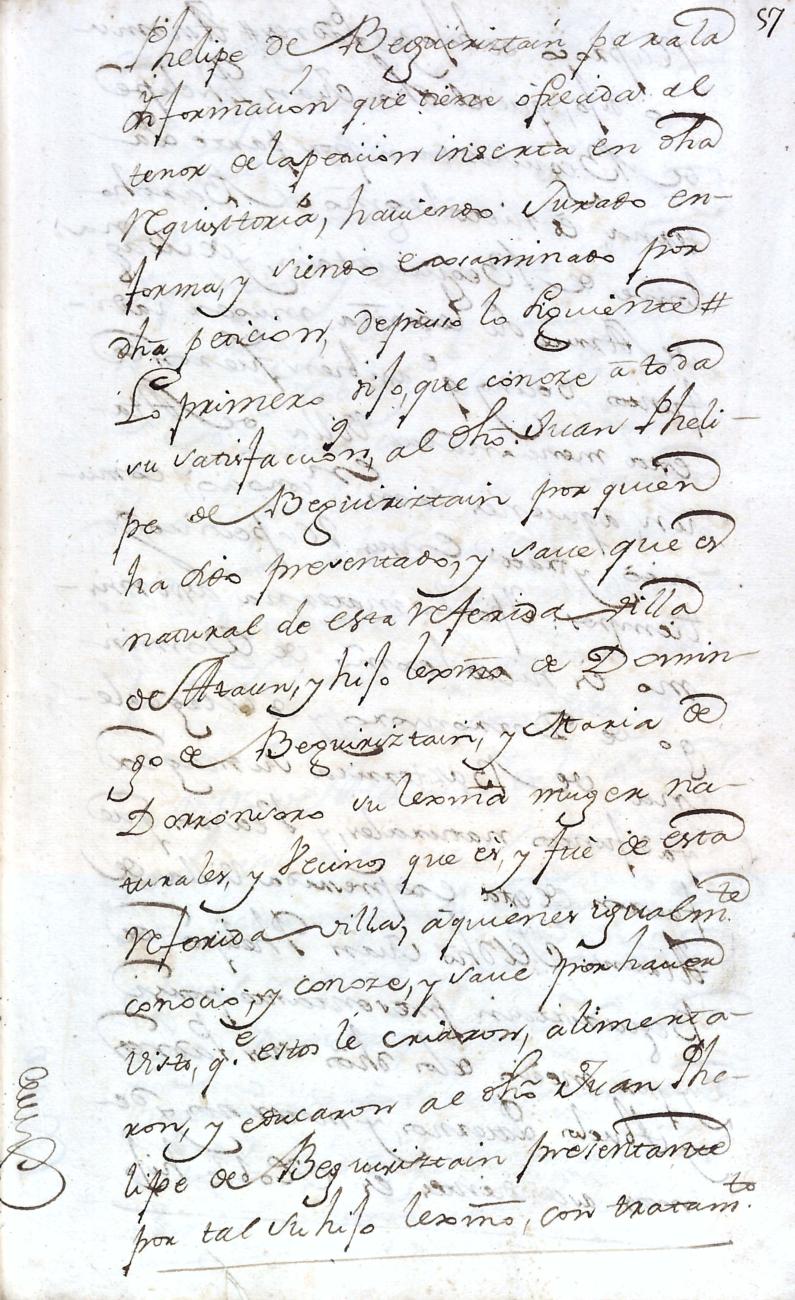 57
Phelipe de Beguiriztain para la
informacion que tiene ofrecida al
tenor de la peticion inserta en dha
requisitoria, haviendo Jurado en
forma, y siendo examinado por
dha peticion, depuso lo siguiente #
Lo primero dijo, que conoze à toda
su satisfaccion, al dho Juan Pheli-
pe de Beguiriztain por quien
ha sido presentado, y save que es
natural de esta referida villa
de Ataun, y hijo lexmo de Domin-
go de Beguiriztain, y Maria de
Dorronsoro su lexma muger na-
turales, y Vecinos que es, y fue de esta
referida villa, à quienes igualmte
conocio, y conoze, y save por haver
visto, qe estos le criaron, alimenta-
ron, y educaron al dho Juan Phe-
lipe de Beguiriztain presentante
por tal su hijo lexmo, con tratamto